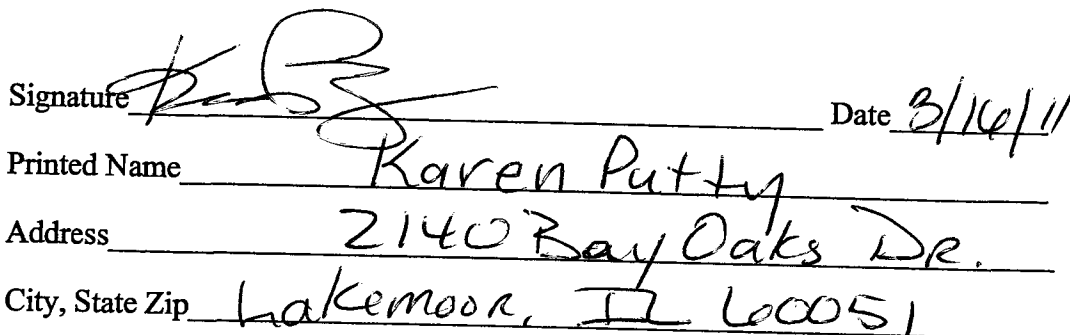 Signature Date 3/16/11
Printed Name Karen Putty
Address 2140 Bay Oaks Dr.
City, State Zip Lakemoor, IL 60051